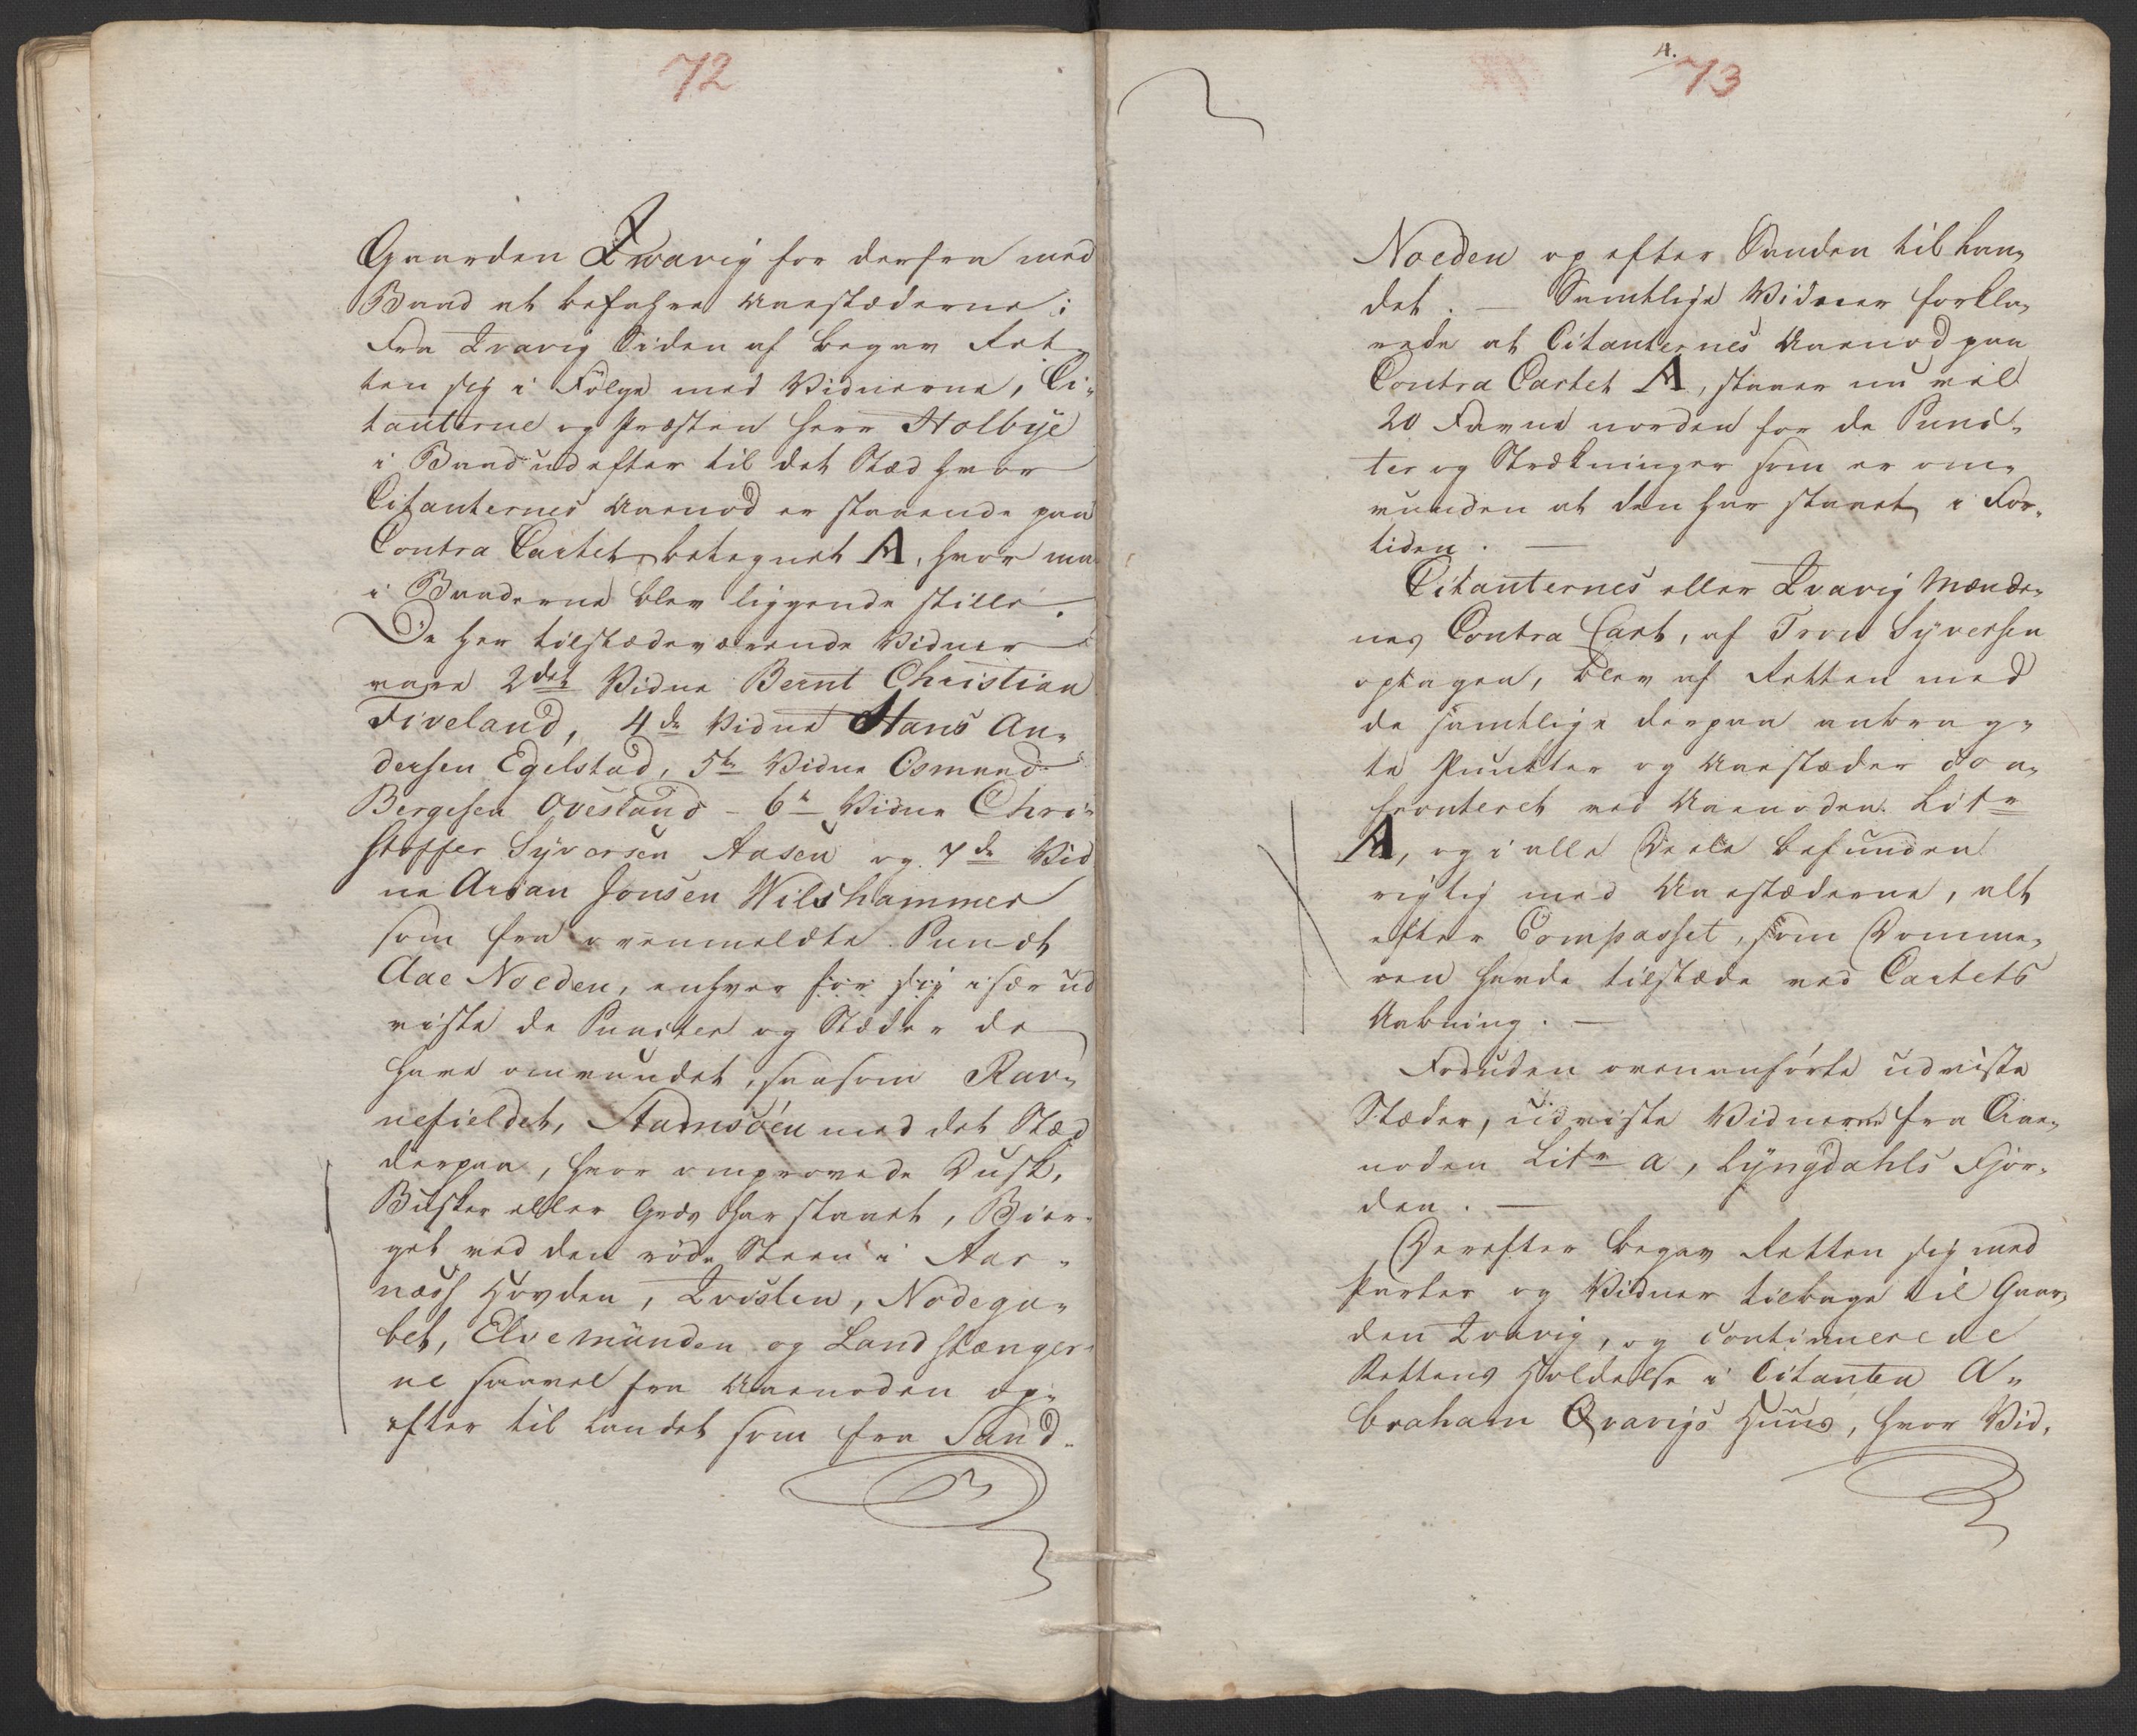 72
Gaarden Qvavig for derfra med
Baad at befahre Aaestæderne:
Fra Qvavig Siden af begav Ret-
ten sig i Følge med Vidnerne, Ci-
tanterne og Præsten Herr Holbye
i Baad udefter til det Stæd hvor
Citanternes Aaenod er staaende paa
Contra Cartet betegnet A, hvor ma
i Baaderne blev liggende stille.
De her tilstædeværende Vidner
vare 2det Vidne Bernt Christian
Fiveland, 4de Vidne Hans An-
dersen Egelstad, 5te Vidne Osmund
Bergesen Ovesland - 6te Vidne Chri-
stoffer Syversen Aasen og 7de Vid
ne Arian Jonsen Wilshammer
som fra ovenmeldte Punct
Aae Noeden, enhver for sig især ud
viste de Puncter og Stæder de
have omvundet, saasom Rav-
nefieldet, Stamsöen med det Stæd
derpaa, hvor omprovede Dusk,
Busker eller Græs har staaet, Bier-
get ved den röde Steen i Aar-
næss Hovden, Qvisten, Nodega-
bet, Elve Münden og Landstænger-
ne saavel fra Aaenoden op-
efter til Landet som fra Sand-
4.
73
Noeden op efter Sanden til Lan-
det. — Samtlige Vidner forkla-
rede at Citanternes Aaenod paa
Contra Cartet A, staaer nu vel
20 Favne norden for de Punc-
ter og Strækninger som er om-
vunden at den har staaet i For-
tiden. —
Citanternes eller Qvavig Mænde-
nes Contra Cart, af Tron Syversen
optagen, blev af Retten med
de samtlige derpaa anbrag-
te Punkter og Aaestæder con-
fronteret ved Aaenoden Litr
A, og i alle Deele befunden
rigtig med Aaestæderne, alt
efter Compasset, som Domme-
ren havde tilstæde ved Cartets
Aabning. —
Foruden ovenanförte udviste
Stæder, udviste Vidnerne fra Aae-
noden Litr a, Lyngdahls Fjor-
den. —
Derefter begav Retten sig med
Parter og Vidner tilbage til Gaar-
den Qvavig, og continuerede
Rettens Holdelse i Citanten A-
braham Qvavigs Huus, hvor Vid-